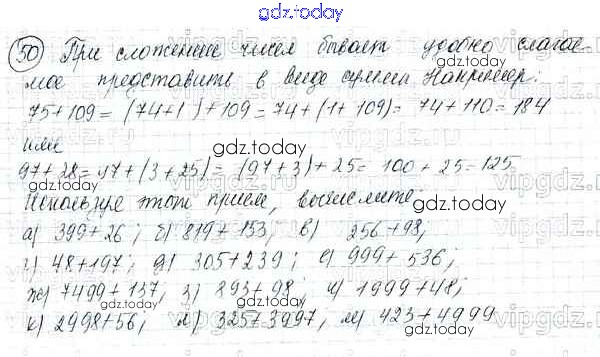 gdz.today
50 При сложение чисел бывает удобно слагае-
мое представить в виде суммы Например:
75+109= (74+1)+109=74+(1+109)= 74+110=184
или
97+28=97+(3+25)= (97+3)+25= 100+25=125
Используя этот прием, вычислите:
а) 399+26; б) 819+153; в) 256+98;
г) 48+197; д) 305+239; е) 999+536;
ж) 7499+137; з) 893+98; и) 1999+48;
к) 2998+56; л) 325+3997; м) 423+4999